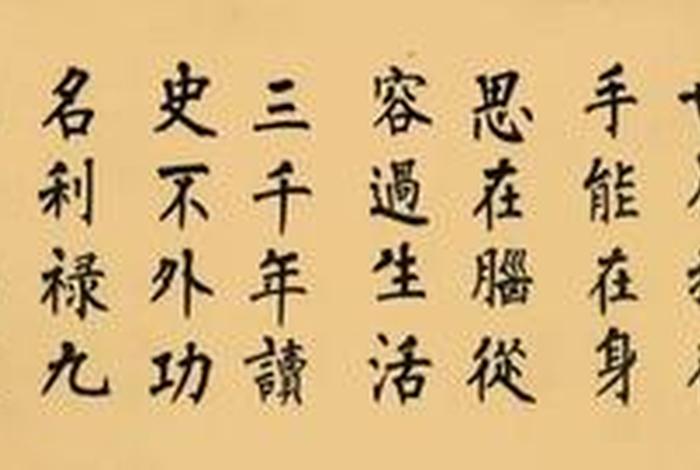 手能在身
思在腦從
容過生活
三千年讀
史不外功
名利禄九